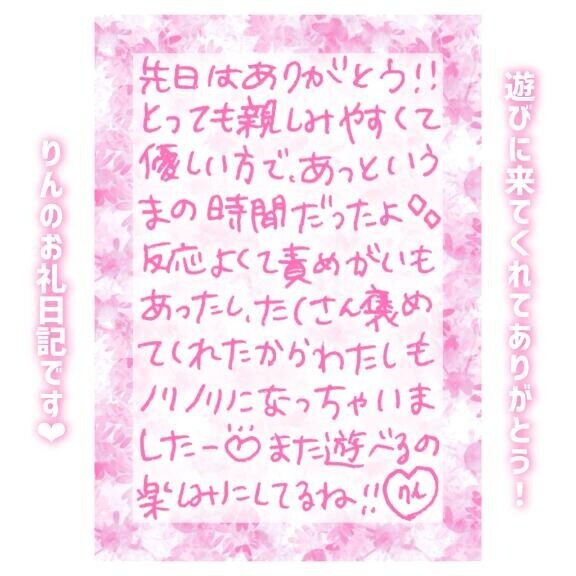 遊びに来てくれてありがとう!
先日はありがとう!!
とっても親しみやすくて
優しい方で、あっという
まの時間だったよ
反応よくて責めがいも
あったし、たくさん褒め
てくれたからわたしも
ノリノリになっちゃいま
したー また遊べるの
楽しみにしてるね!! りん
りんのお礼日記です♥